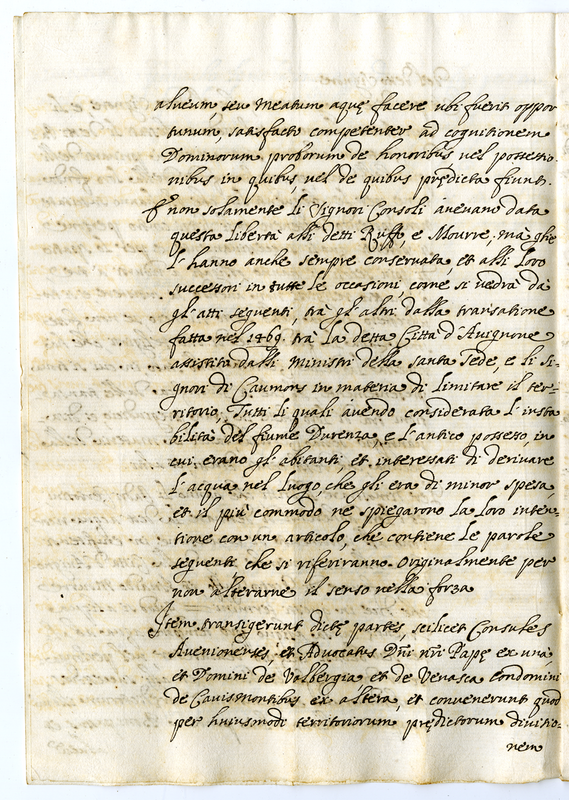 alveum, seu meatum aquę facere ubi fuerit oppor
tunum, satisfacto competenter ad cognitionem
Dominorum proborum de honoribus vel possessio
nibus in quibus, vel de quibus prędicta fiunt.
E non solamente li Signori Consoli avevano data
questa libertà alli detti Ruffo, e Mourre, mà ghe
l'hanno anche sempre conservata, et alli loro
successori in tutte le occasioni, come si vedrà dà
gl'atti seguenti, trà gl'altri dalla transatione
fatta nel 1469. trà la detta Città d'Avignone
assistita dalli Ministri della Santa Sede, e li Si-
gnori di Caumons in materia di limitare il ter-
ritorio, Tutti li quali avendo considerata l'insta
bilità del fiume Durenza, e l'antico possesso, in
cui erano gl'abitanti, et interessati di derivare
l'acqua nel luogo, che gli era di minor spesa,
et il più commodo ne spiegarono la loro inten-
tione con un articolo, che contiene le parole
seguenti che si riferiranno Originalmente per
non alterarne il senso nella forza
Item transigerunt dictę partes, scilicet Consules
Avenionenses, et Advocatus Dñi nr̃i Papę ex una,
et Domini de Valbergia et de Venasca condomini
de Cavismontibus ex altera, et convenerunt quod
per huiusmodi territoriorum prędictorum divisio-
nem